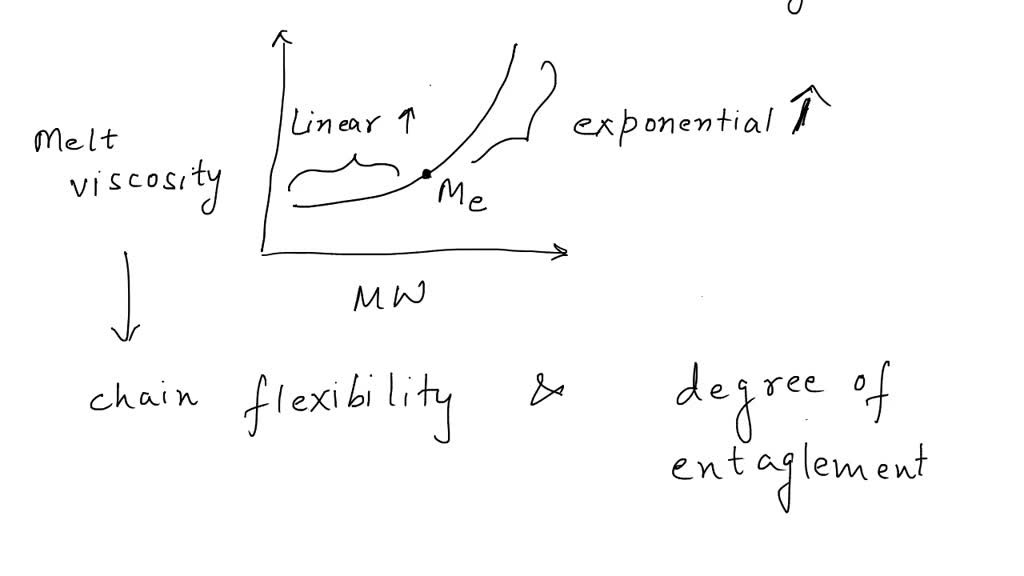 Linear ↑
exponential ↑
Melt
viscosity
Me
MW
chain flexibility & degree of
entaglement